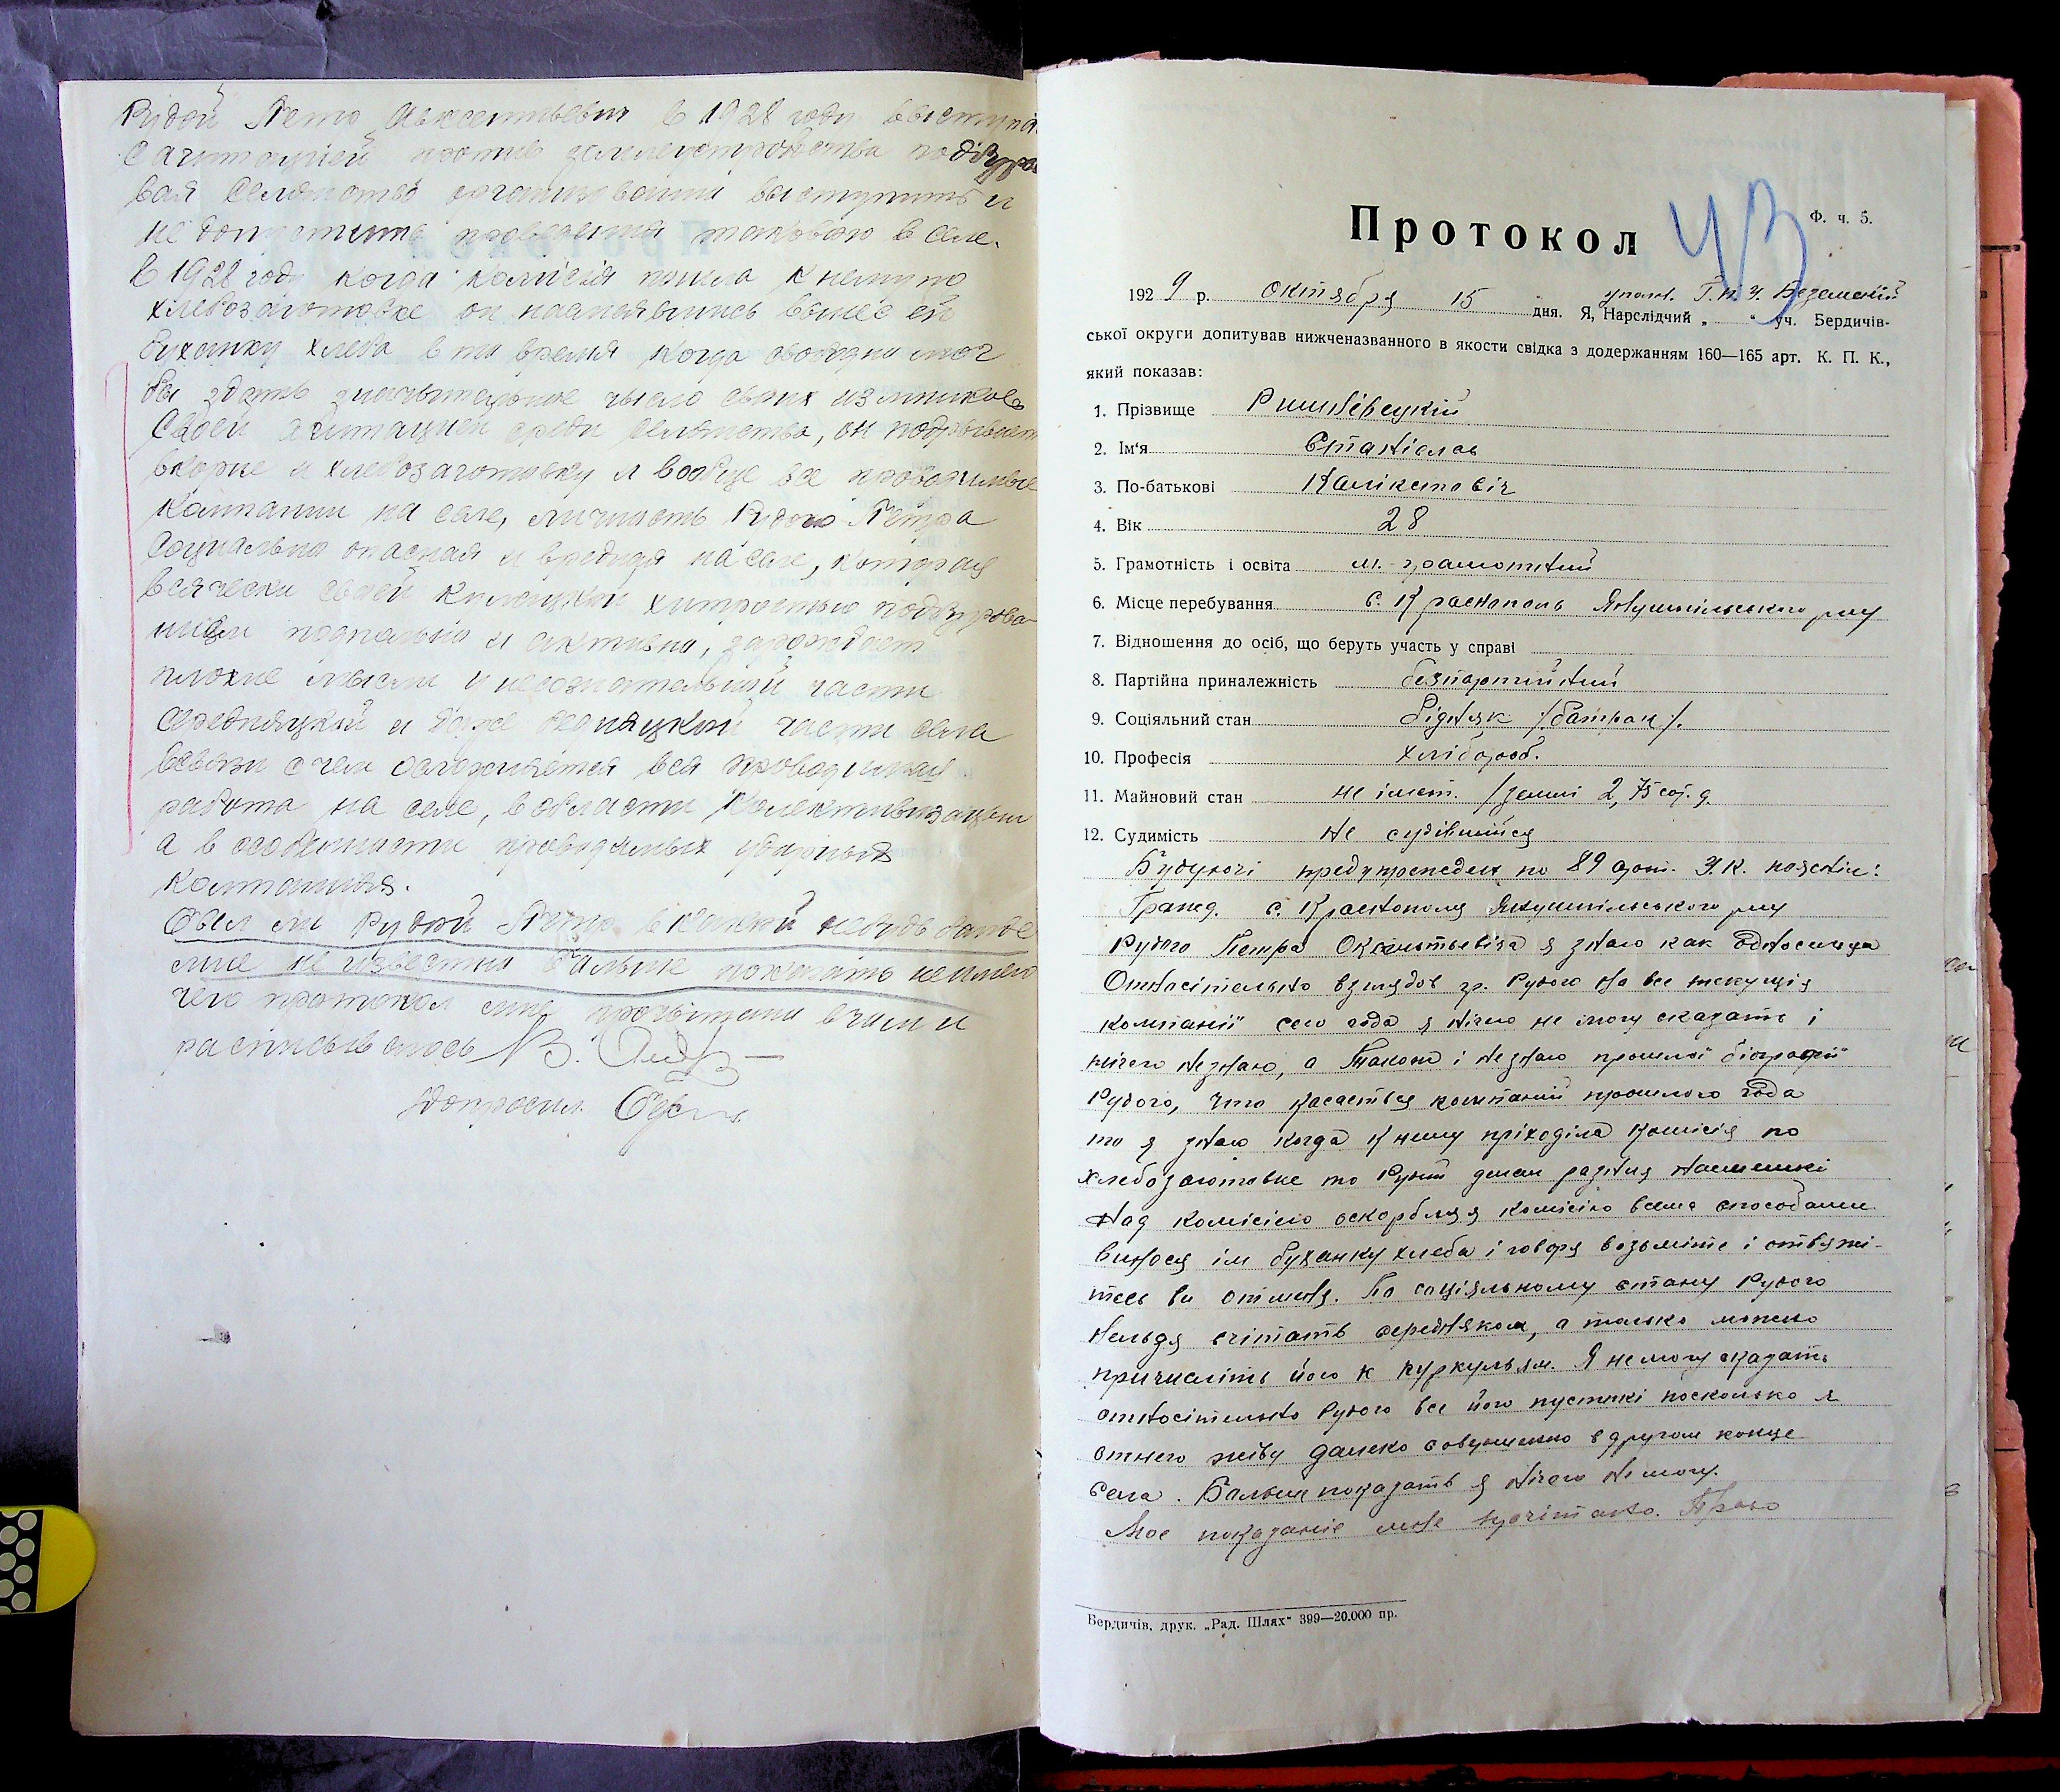 Рудой Петро Авксентьевич в 1928 году выступа
с агитацией против землеустройства подзуро
вая селянство организованно выступить и
не допустить проведения такового в селе.
в 1928 году когда комісія пошла к нему по
хлебозаготовке он насмеявшись вынес ей
буханку хлеба в то время когда свободно мог
бы здать значительное число своих излишков
Своей агитацией среди селянства, он подрывает
вкорне и хлебозаготовку и вообще все проводимые
Компании на селе, личность Рудого Петра
социально опасная и вредная на селе, которая
всячески своей хитростью подзурова
нием и активно, зарождает
плохие мысли у несознательной части
середняцкой и даже бедняцкой части села
всвязи с чем осложняется вся проводимая
работа на селе, в области Колективизации
а в особенности проводимых ударных
компаниях.
Был ли Рудой Петр в какой небудь банде
мне не известно больше показать не имею
чего протокол мне прочитали в чем и
расписываюсь
Допросил
Протокол
43
Ф. ч. 5.
1929 р. октября 15 дня. Я, Нарслідчий „ “ уч. Бердичів-
упол. Г.П.У.
ської округи допитував нижченазванного в якости свідка з додержанням 160—165 арт. К. П. К.,
який показав:
1. Прізвище
2. Ім'я Станіслав
3. По-батькові Калікстовіч
4. Вік 28
5. Грамотність і освіта м. грамотний
6. Місце перебування с. Краснополь Янушпільського р-ну
7. Відношення до осіб, що беруть участь у справі
8. Партійна приналежність безпартійний
9. Соціяльний стан бідняк /батрак/.
10. Професія хлібороб.
11. Майновий стан не імет. /землі 2,75 сот. д.
12. Судимість не судівшийся
Будучи предупрежден по 89 арт. У.К. поясняє:
Гражд. с. Краснополя Янушпільського р-ну
Рудого Петра Оксентьевіча я знаю как односельца
Относітельно взглядов гр. Рудого на все текущія
компаниї сего года я нічего не могу сказать і
нічего незнаю, а також і незнаю прошлої біографії
Рудого, что касається компаній прошлого года
то я знаю когда к нему пріходіла комісія по
хлебозаготовке то Рудий делал разния насмешкі
над комісією оскорбляя комісію всеми способами
винося ім буханку хлеба і говоря возьміте і отвяжі-
тесь ви отменя. По соціяльному стану Рудого
нельзя счітать середняком, а только можно
причисліть його к куркулям. Я не могу сказать
относітельно Рудого все його посколько я
отнего живу далеко совершенно в другом конце
села. Больше показать я нічого не могу.
Мое показаніе мне прочітано.
Бердичів, друк. „Рад. Шлях“ 399—20.000 пр.